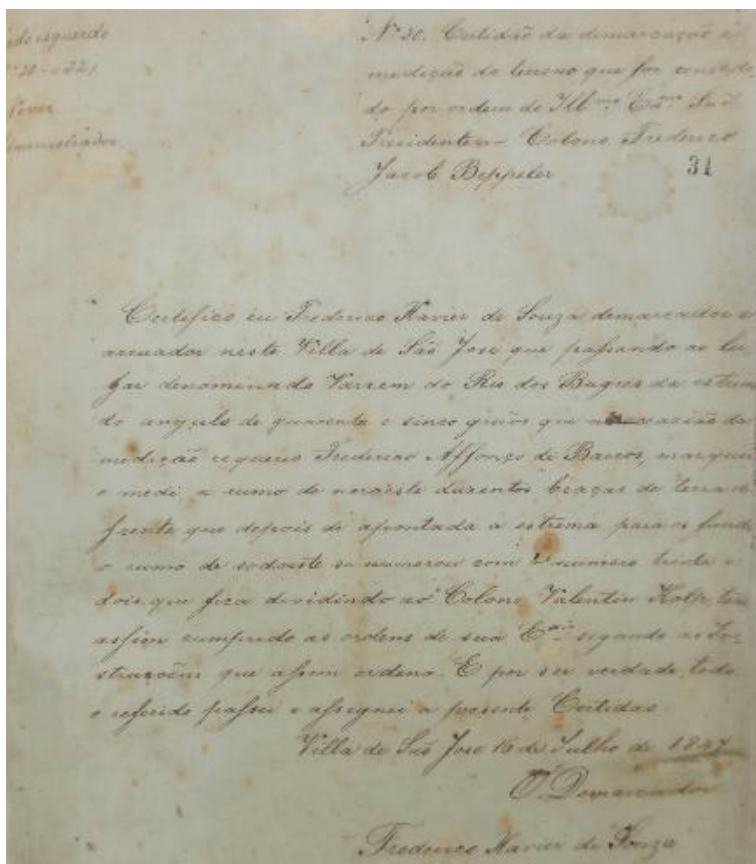 do esquerdo
Nº 30. Certidão da demarcação e
medição do terreno que foi concedi
do por ordem do Illmo. Exmo. Snr.
Presidente ao Colono Frederico
Jacob Beppeler
31
Administrador
Certifico eu Frederico Xavier de Souza demarcador e
arruador neste Villa de São José que passando ao lu
gar denominado Varzem do Rio dos Bugres da estrema
do angulo de quarenta e sinco gráos que na occazião da
medição requereo Frederico Affonço de Barros, marquei
e medi, a rumo de noroeste duzentos braças de terra de
frente que depois de aprontada a estrema para os fundos
o rumo de sodoeste se numerou com o numero trinta e
dois que fica dividindo ao Colono Valentin Kolp, tendo
assim cumprido as ordens de sua Exa. segundo as In
strucoens que assim ordena. E por ser verdade todo
o referido passei e assignei a presente Certidão
Villa de São José 16 de Julho de 1847
O Demarcador
Frederico Xavier de Souza